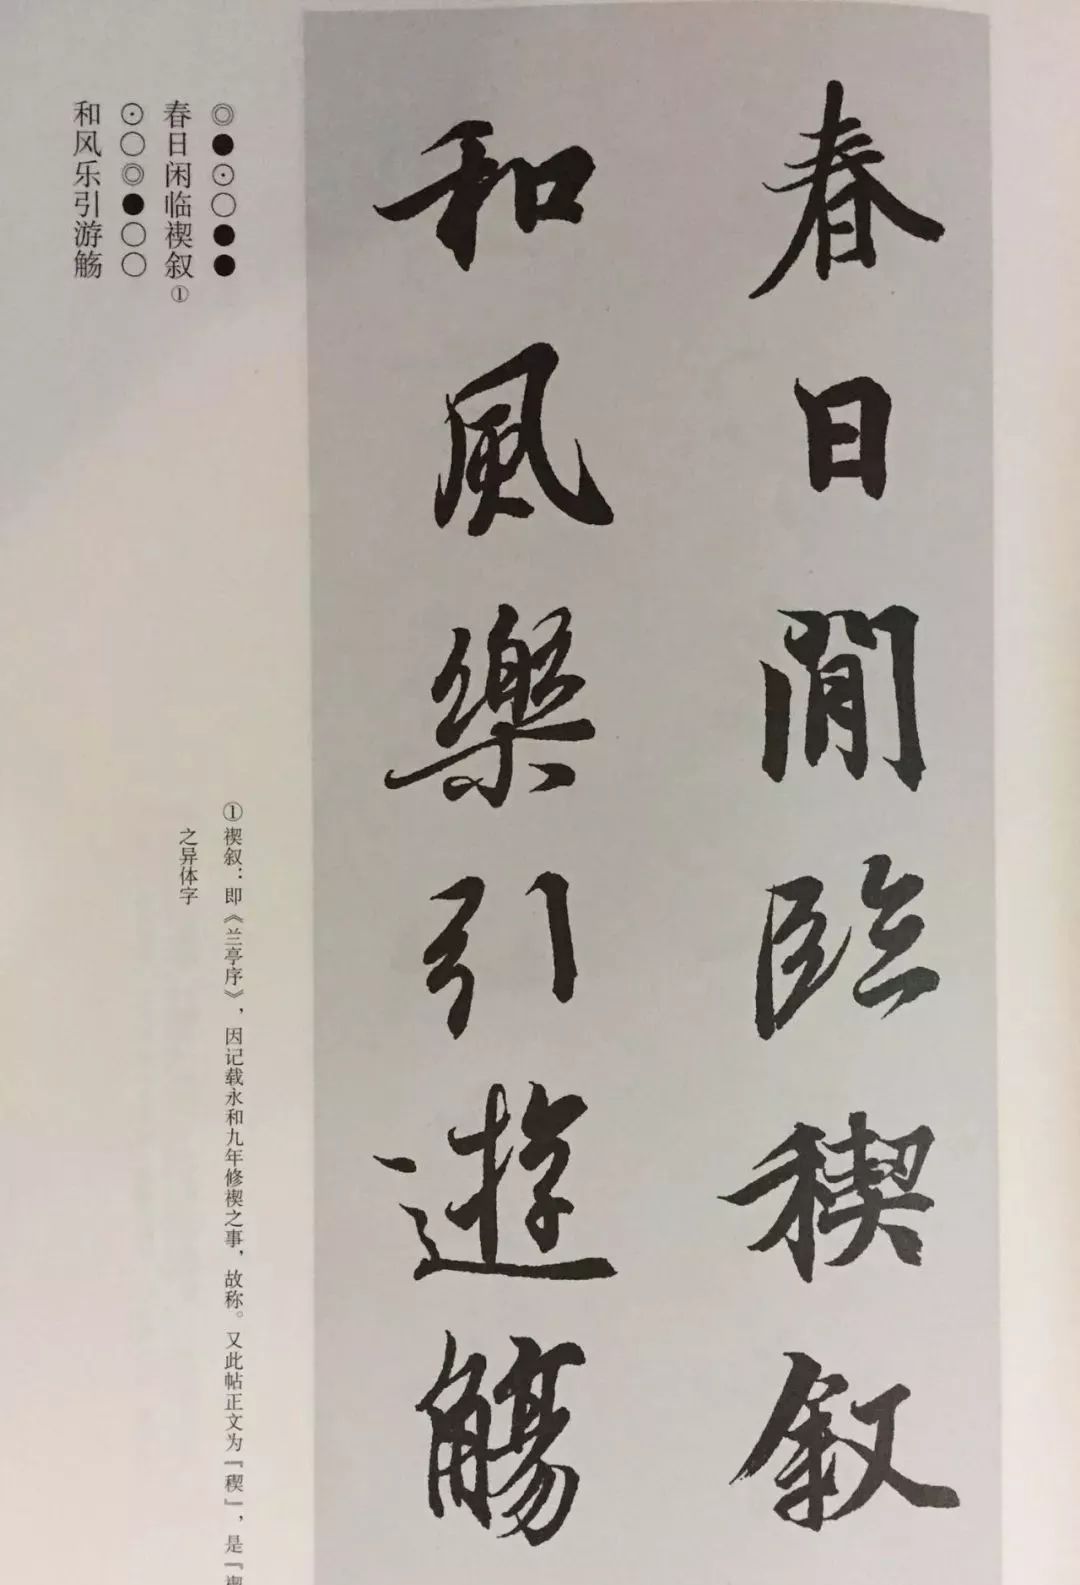 春日閒臨稧叙
和風樂引遊觴
◎●⊙○●●
春日闲临禊叙①
⊙○◎●○○
和风乐引游觞
①禊叙：即《兰亭序》，因记载永和九年修禊之事，故称。又此帖正文为『稧』，是『禊
之异体字